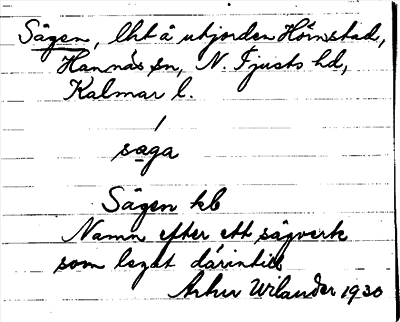 Sågen, lht å utjorden Hörnstad,
Hannäs sn, N. Tjusts hd,
Kalmar l.
saga
Sågen kb
Namn efter ett sågverk
som legat därintill
Arthur Wilander 1930